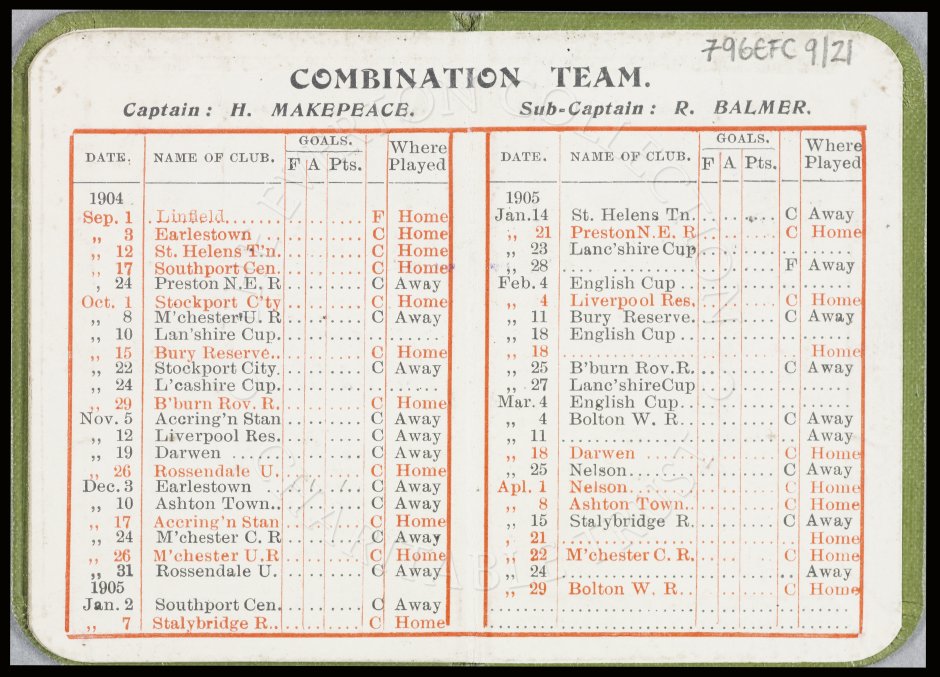 796EFC 9/21
COMBINATION TEAM.
Captain: H. MAKEPEACE. Sub-Captain: R. BALMER.
DATE. NAME OF CLUB. GOALS. F A Pts. Where Played
1904
Sep. 1 Linfield F Home
„ 3 Earlestown C Home
„ 12 St. Helens T'n. C Home
„ 17 Southport Cen. C Home
„ 24 Preston N.E. R C Away
Oct. 1 Stockport C'ty C Home
„ 8 M'chester U. R C Away
„ 10 Lan'shire Cup.
„ 15 Bury Reserve.. C Home
„ 22 Stockport City. C Away
„ 24 L'cashire Cup.
„ 29 B'burn Rov. R. C Home
Nov. 5 Accring'n Stan C Away
„ 12 Liverpool Res. C Away
„ 19 Darwen C Away
„ 26 Rossendale U. C Home
Dec. 3 Earlestown C Away
„ 10 Ashton Town.. C Away
„ 17 Accring'n Stan C Home
„ 24 M'chester C. R C Away
„ 26 M'chester U.R C Home
„ 31 Rossendale U. C Away
1905
Jan. 2 Southport Cen. C Away
„ 7 Stalybridge R.. C Home
DATE. NAME OF CLUB. GOALS. F A Pts. Where Played
1905
Jan. 14 St. Helens Tn. C Away
„ 21 Preston N.E. R C Home
„ 23 Lanc'shire Cup
„ 28 F Away
Feb. 4 English Cup
„ 4 Liverpool Res. C Home
„ 11 Bury Reserve. C Away
„ 18 English Cup
„ 18 Home
„ 25 B'burn Rov. R. C Away
„ 27 Lanc'shire Cup
Mar. 4 English Cup..
„ 4 Bolton W. R. C Away
„ 11 Away
„ 18 Darwen C Home
„ 25 Nelson C Away
Apl. 1 Nelson C Home
„ 8 Ashton Town.. C Home
„ 15 Stalybridge R. C Away
„ 21 Home
„ 22 M'chester C. R. C Home
„ 24 Away
„ 29 Bolton W. R C Home